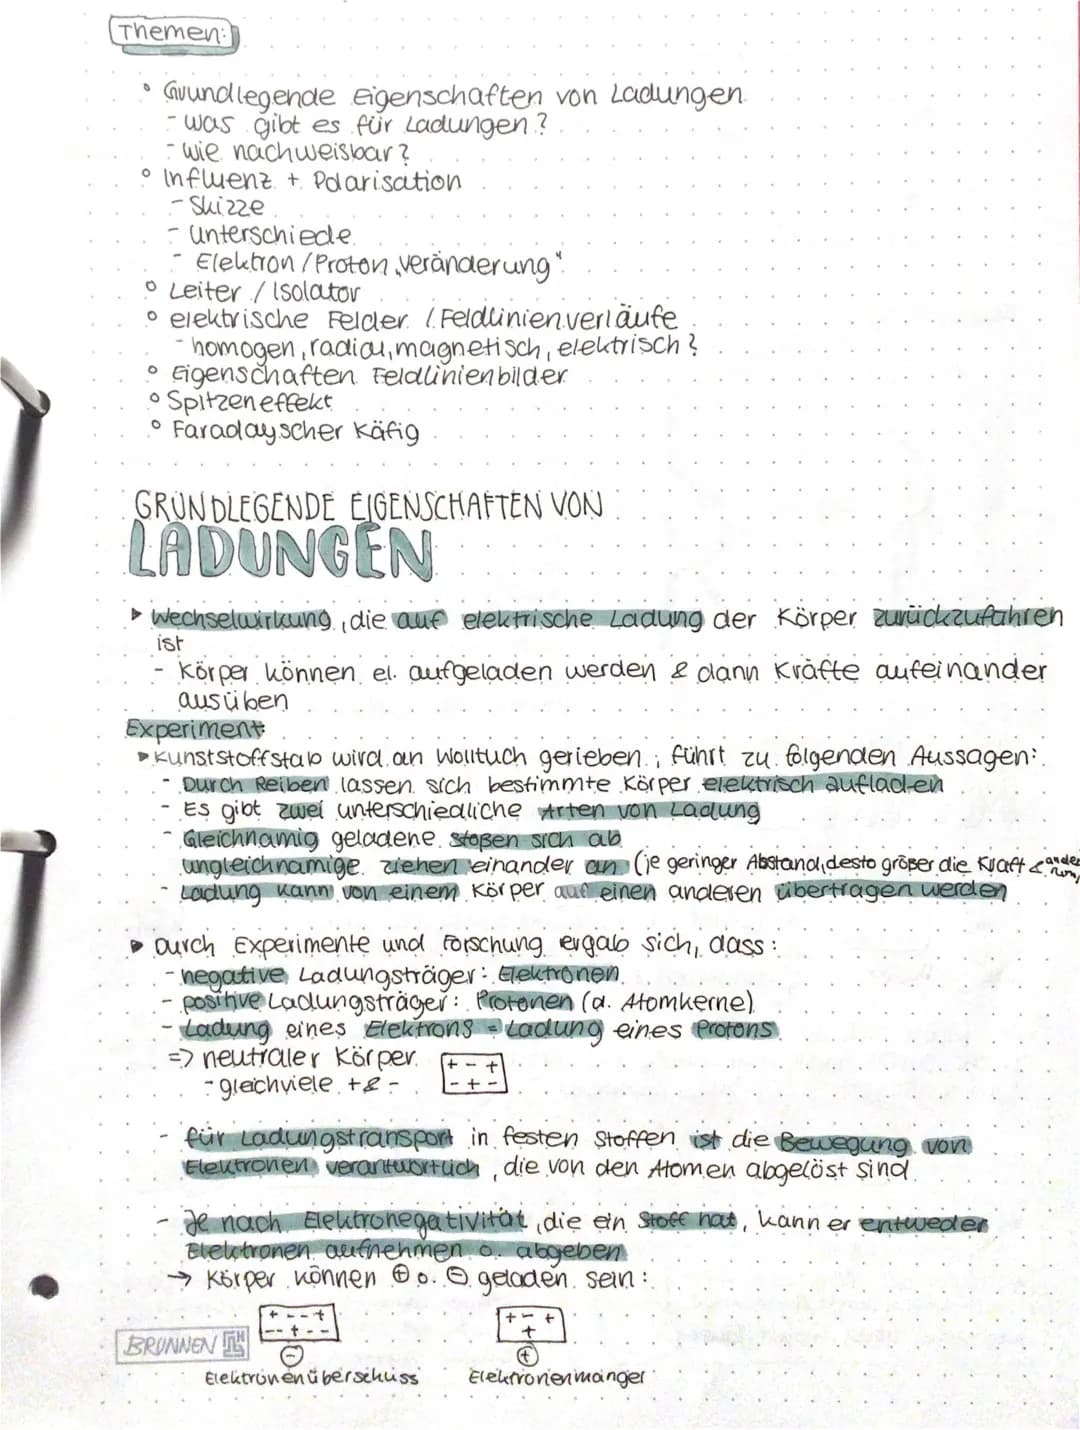 Themen:
° Grundlegende Eigenschaften von Ladungen
- was gibt es für Ladungen?
- wie nachweisbar?
° Influenz + Polarisation
- Skizze
- Unterschiede
- Elektron / Proton „veränderung"
° Leiter / Isolator
° elektrische Felder / Feldlinienverläufe
- homogen, radial, magnetisch, elektrisch?
° Eigenschaften Feldlinienbilder
° Spitzeneffekt
° Faradayscher Käfig
GRUNDLEGENDE EIGENSCHAFTEN VON
LADUNGEN
▸ Wechselwirkung, die auf elektrische Ladung der Körper zurückzuführen
ist
- Körper können el. aufgeladen werden & dann Kräfte aufeinander
ausüben
Experiment:
▸ Kunststoffstab wird an Wolltuch gerieben; führt zu folgenden Aussagen:
- Durch Reiben lassen sich bestimmte Körper elektrisch aufladen
- Es gibt zwei unterschiedliche Arten von Ladung
- Gleichnamig geladene stoßen sich ab
ungleichnamige ziehen einander an (je geringer Abstand, desto größer die Kraft & ander
- Ladung kann von einem Körper auf einen anderen übertragen werden
▸ Durch Experimente und Forschung ergab sich, dass:
- negative Ladungsträger: Elektronen
- positive Ladungsträger: Protonen (a. Atomkerne)
- Ladung eines Elektrons = Ladung eines Protons
=> neutraler Körper
+ - +
- gleichviele + & -
- + -
- für Ladungstransport in festen Stoffen ist die Bewegung von
Elektronen verantwortlich, die von den Atomen abgelöst sind
- Je nach Elektronegativität, die ein Stoff hat, kann er entweder
Elektronen aufnehmen o. abgeben
→ Körper können ⊕ o. ⊖ geladen sein:
+ - - + + - +
- - + - - +
BRUNNEN
⊖ ⊕
Elektronenüberschuss Elektronenmangel